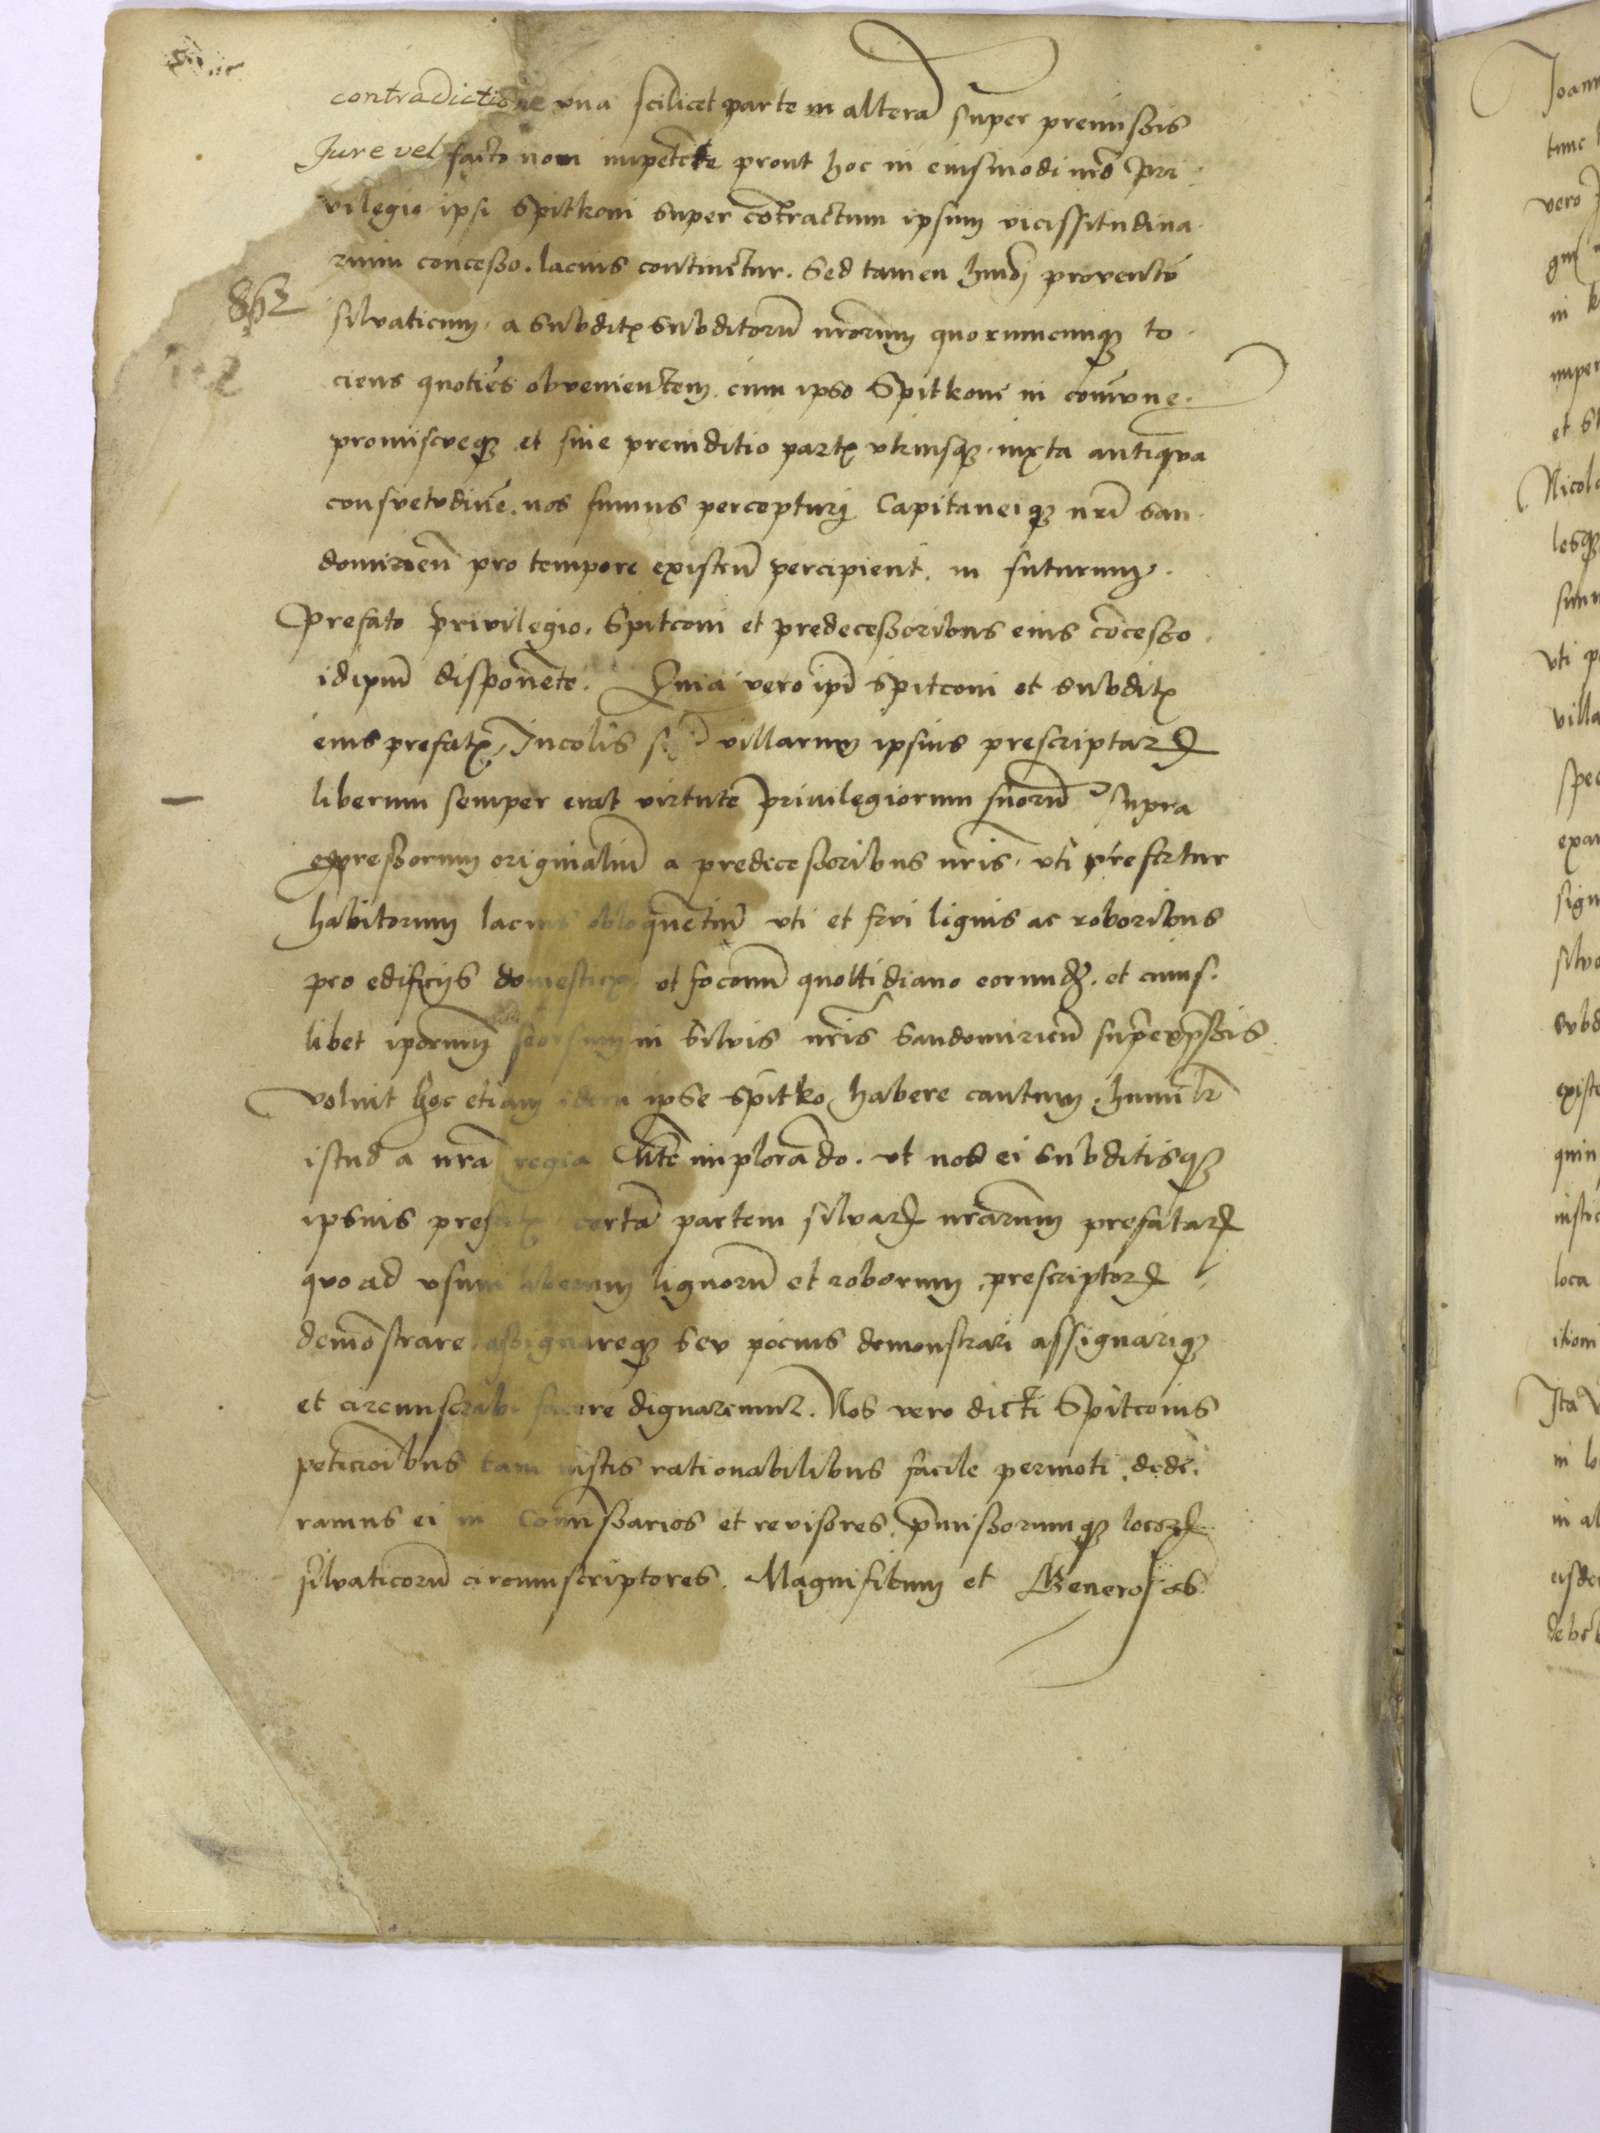 contradictione vna scilicet parte in alterã super premissis
Jure vel facto non impetẽte prout hoc in eiusmodi nrõ pri
vilegio ipsi Spitkoni super cõtractum ipsum vicissitudina
rium concesso. lacius continetur. Sed tamen hmõi proventũ
862
silvaticum. a subditꝭ subditorũ nrõrum quorumcunqꝫ to
ciens quotiẽs obvenientem. cum ipso Spitkone in comvne.
promiscveqꝫ et sine preiuditio partꝭ vtriusqꝫ. iuxta antiqva
consvetvdinẽ. nos sumus percepturi Capitaneiqꝫ nrĩ san
domirieñ pro tempore existeñ percipient. in futurum.
Prefato privilegio. Spitconi et predecessoribus eius cõcesso
idipm̃ disponẽte. Quia vero ipĩ Spitconi et subditꝭ
eius prefatꝭ, Incolis villarum ipsius prescriptarꝝ
liberum semper erat virtute privilegiorum suorũ supra
expressorum originaliũ a predecessoribus nrĩs. vti prefertur
habitorum lacius obloquẽtiũ vti et frui lignis ac roboribus
pro edificijs domesticꝭ. et focorũ quottidiano eorundꝫ. et cuius
libet ipõrum seorsum in silvis nrĩs Sandomirieñ supẽxp̃ssis
voluit hoc etiam idem ipse Spitko habere cautum. humilr̃
istud a nrã regia implorãdo. vt nos ei subditisqꝫ
ipsius prefatꝭ certã partem silvarꝝ nrãrum prefatarꝝ
quo ad vsum liberum lignorũ et roborum prescriptorꝝ
demõstrare assignareqꝫ sev pocius demonstrari assignariqꝫ
et circumscribi facere dignaremur. Nos vero dicti Spitconis
peticioĩbus tam iustis rationabilibus facile permoti. dede
ramus ei in Comissarios et revisores. p̃missorumqꝫ locorꝝ
silvaticorũ circumscriptores. Magnificum et Generosos